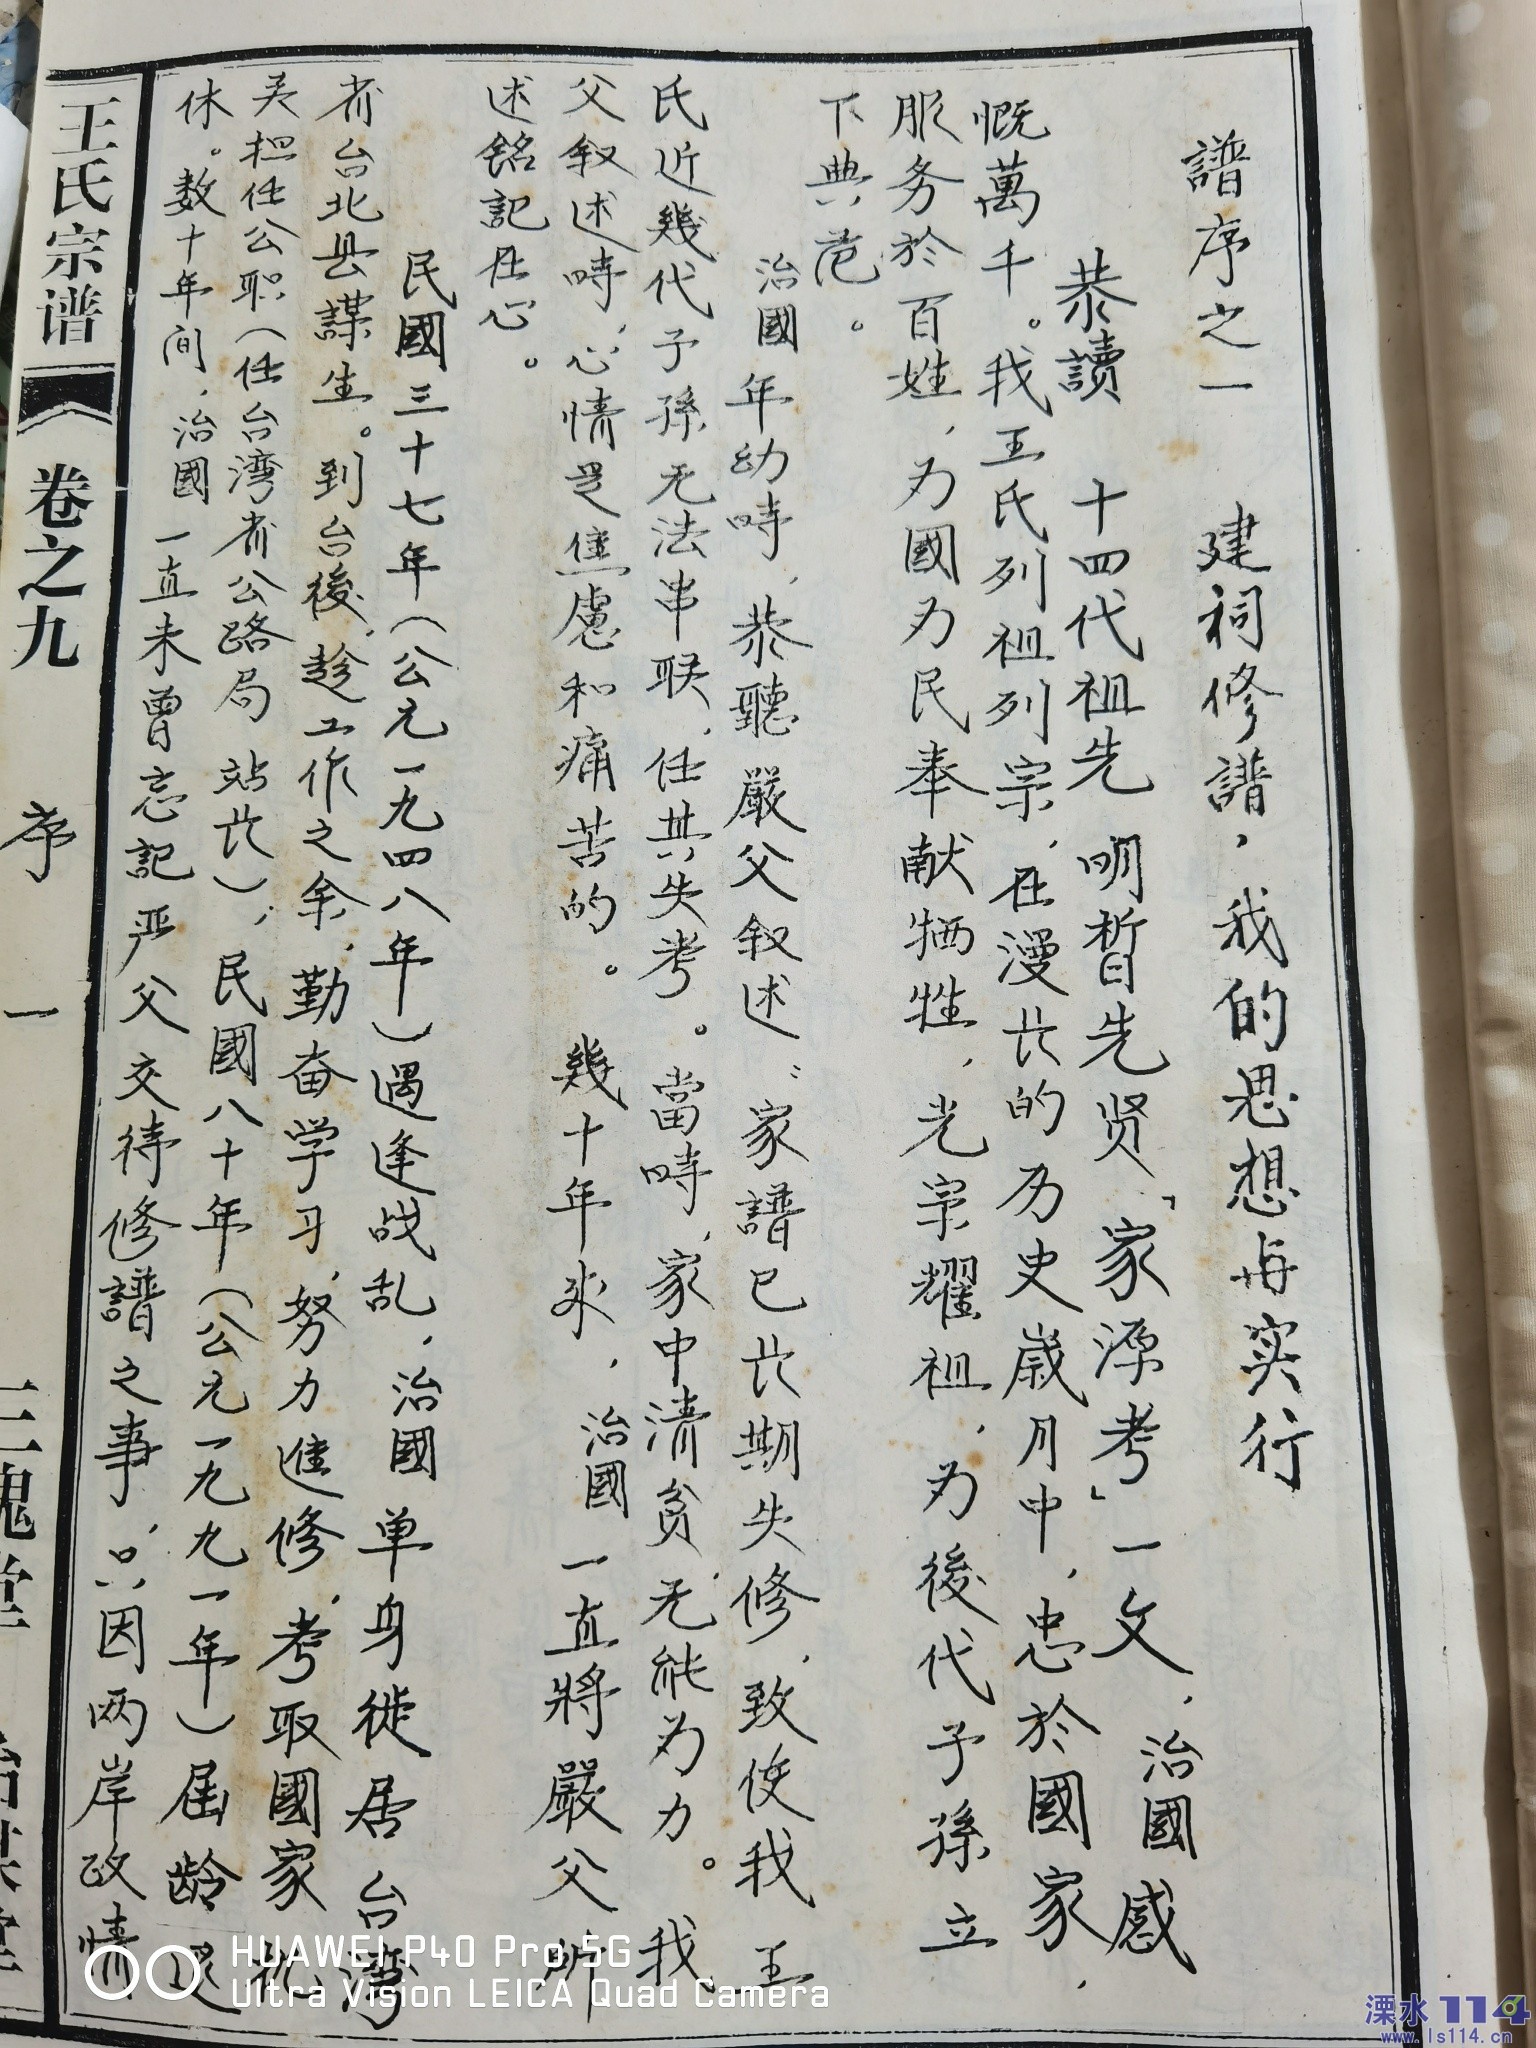 譜序之一　建祠修譜，我的思想与实行
恭讀　十四代祖先　明晳先贤「家源考」一文，治國感
慨萬千。我王氏列祖列宗，在漫长的历史歲月中，忠於國家，
服务於百姓，为國为民奉献牺牲，光宗耀祖，为後代子孫立
下典范。
治國年幼時，恭聽嚴父叙述：家譜已长期失修，致使我王
氏近幾代子孫无法串联，任其失考。當時，家中清贫，无能为力。我
父叙述時，心情是焦慮和痛苦的。幾十年来，治國一直將嚴父所
述銘記在心。
民國三十七年（公元一九四八年）遇逢战乱，治國单身徙居台湾
省台北县謀生。到台後，趁工作之余，勤奋学习，努力進修，考取國家
关担任公职（任台湾省公路局站长），民國八十年（公元一九九一年）届龄退
休。数十年间，治國一直未曾忘記严父交待修譜之事，只因两岸政情
王氏宗谱
卷之九
序
一
三槐堂
HUAWEI P40 Pro 5G
Ultra Vision LEICA Quad Camera
溧水114
www.ls114.cn